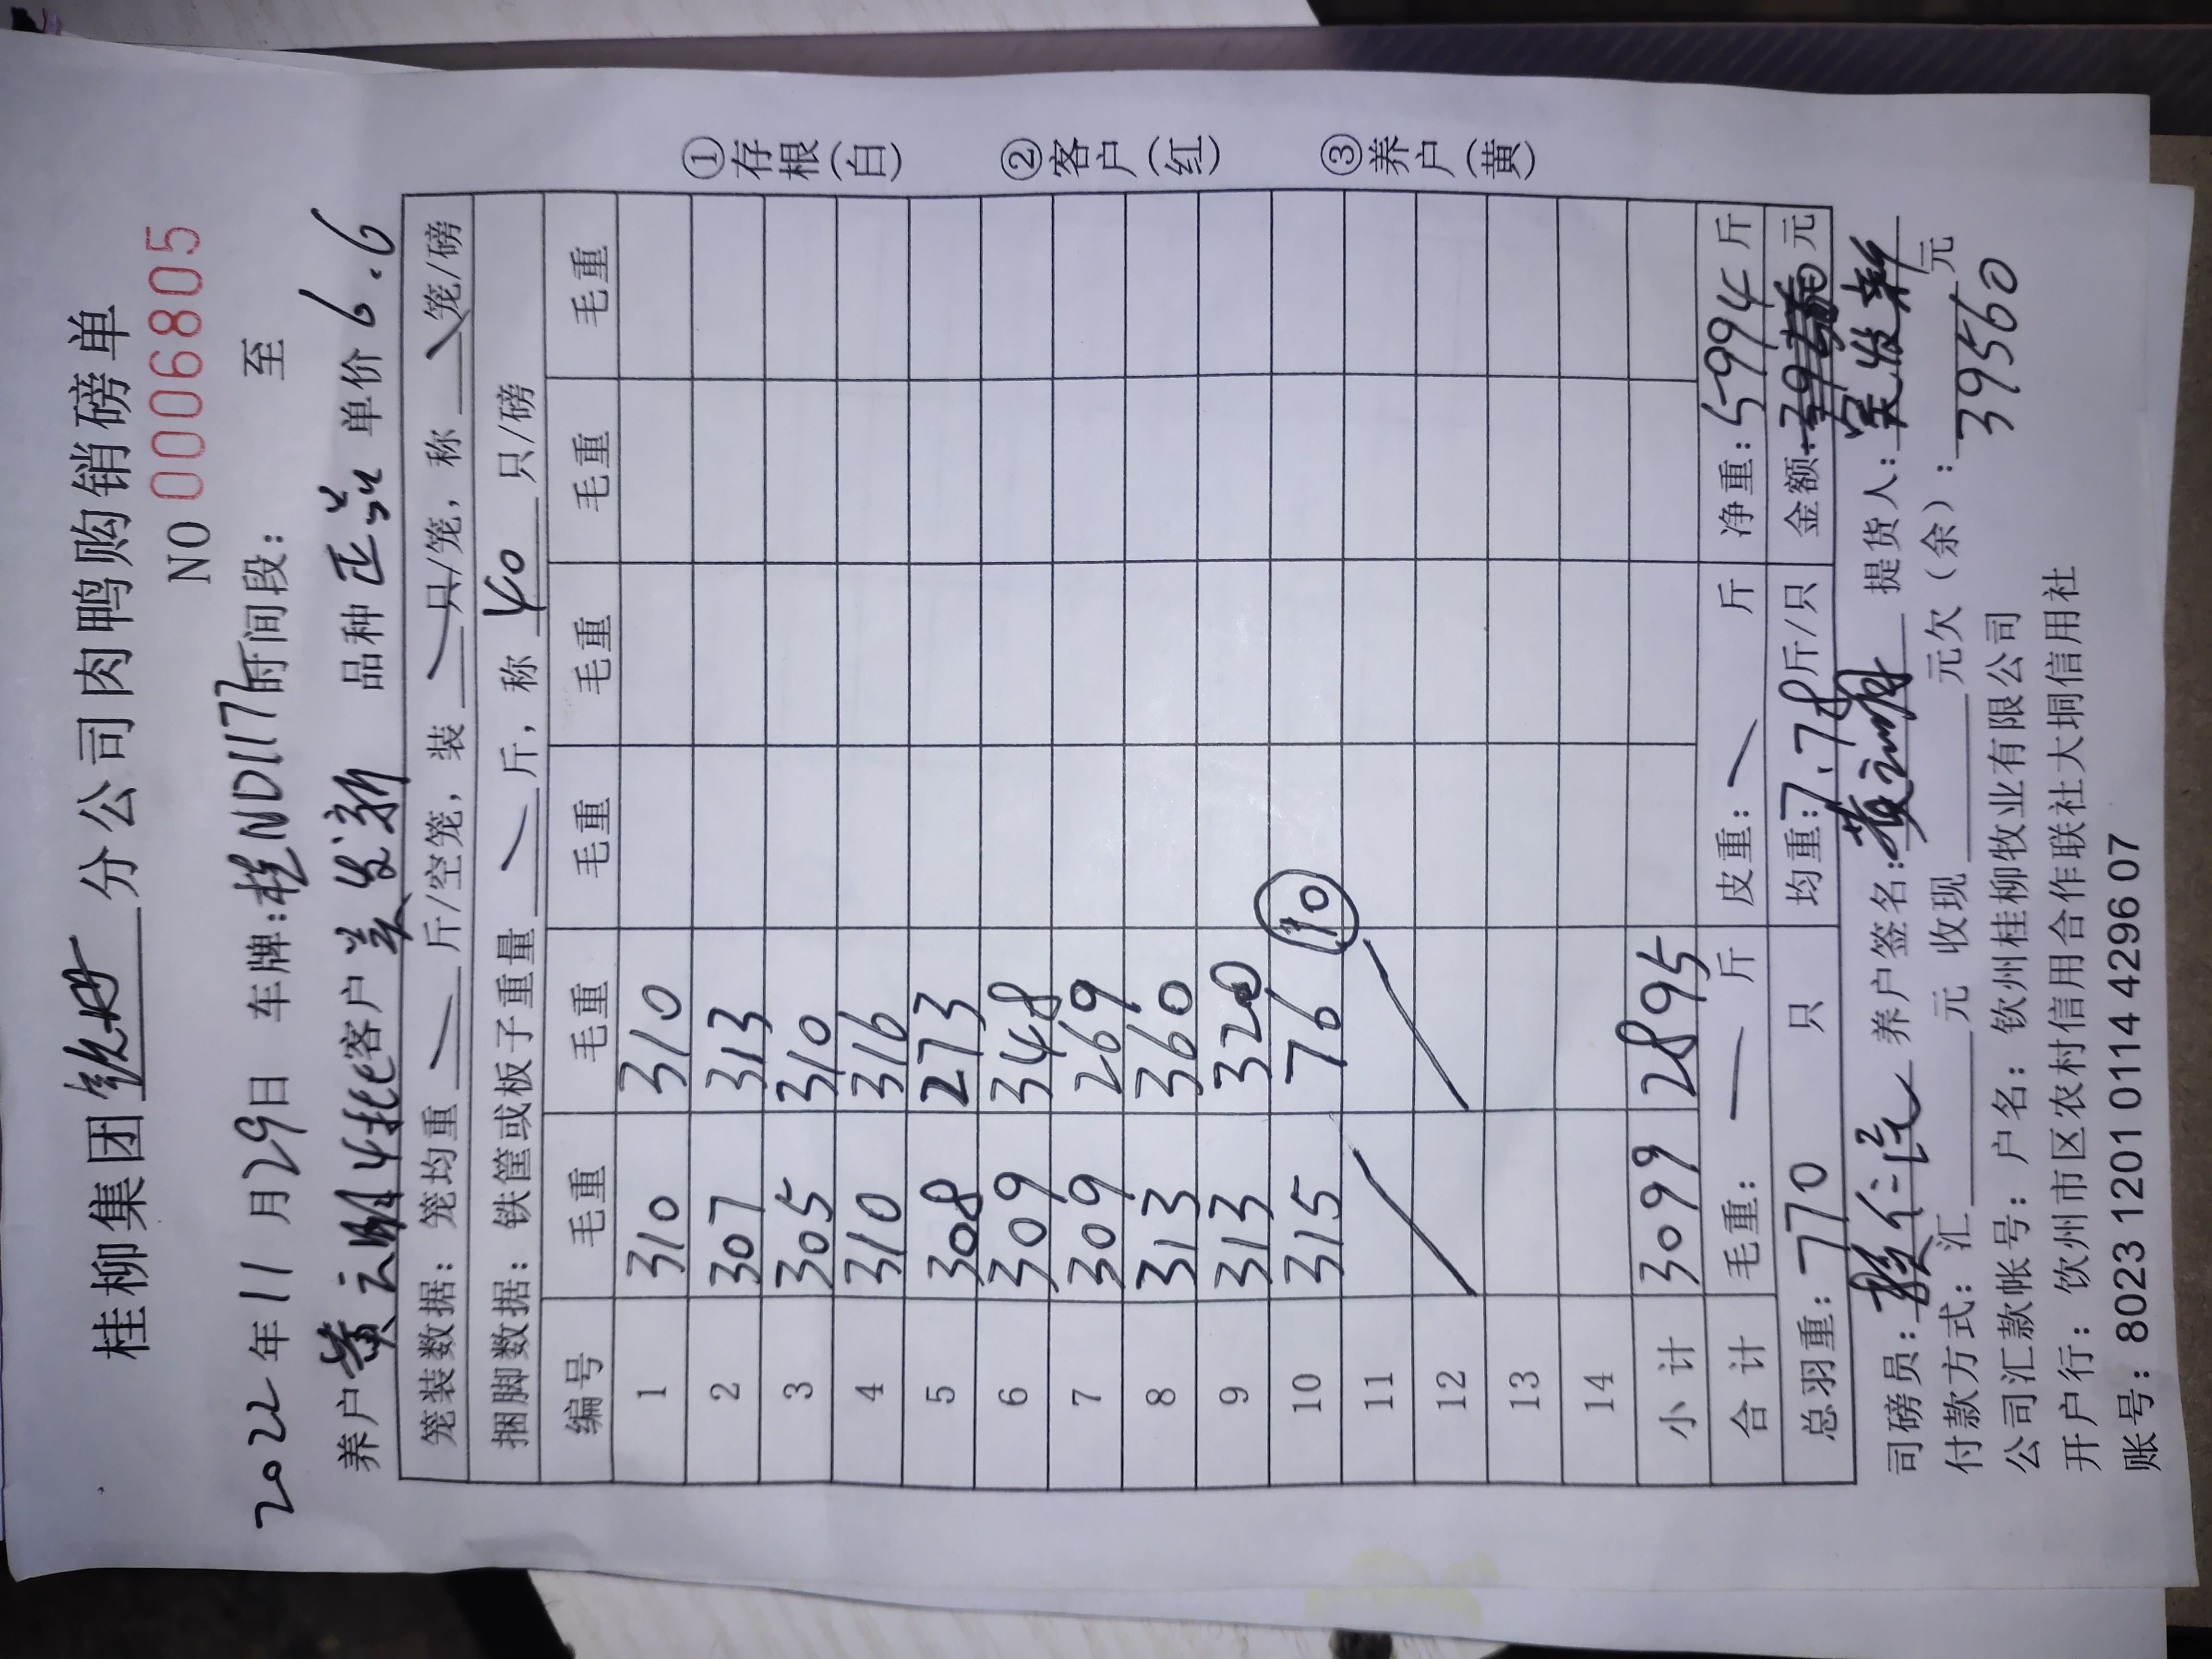 桂柳集团钦州分公司肉鸭购销磅单
NO 0006805
2022年11月29日 车牌:桂ND1177时间段: 至
养户黄云 客户 发新 品种 正 单价6.6
笼装数据: 笼均重 斤/空笼, 装 只/笼, 称 笼/磅
捆脚数据: 铁筐或板子重量 斤, 称 40 只/磅
编号 毛重 毛重 毛重 毛重 毛重 毛重
1 310 310
2 307 313
3 305 310
4 310 316
5 308 273
6 309 348
7 309 269
8 313 360
9 313 320
10 315 76 10
11
12
13
14
小计 3099 2895
合计 毛重: 斤 皮重: 斤 净重:5994斤
总羽重:770 只 均重:7.78斤/只 金额: 元
司磅员: 养户签名:黄 提货人: 发新
付款方式: 汇 元 收现 元欠(余): 元
39560
公司汇款帐号: 户名: 钦州桂柳牧业有限公司
开户行: 钦州市区农村信用合作联社大垌信用社
账号: 8023 1201 0114 4296 07
①存根(白) ②客户(红) ③养户(黄)